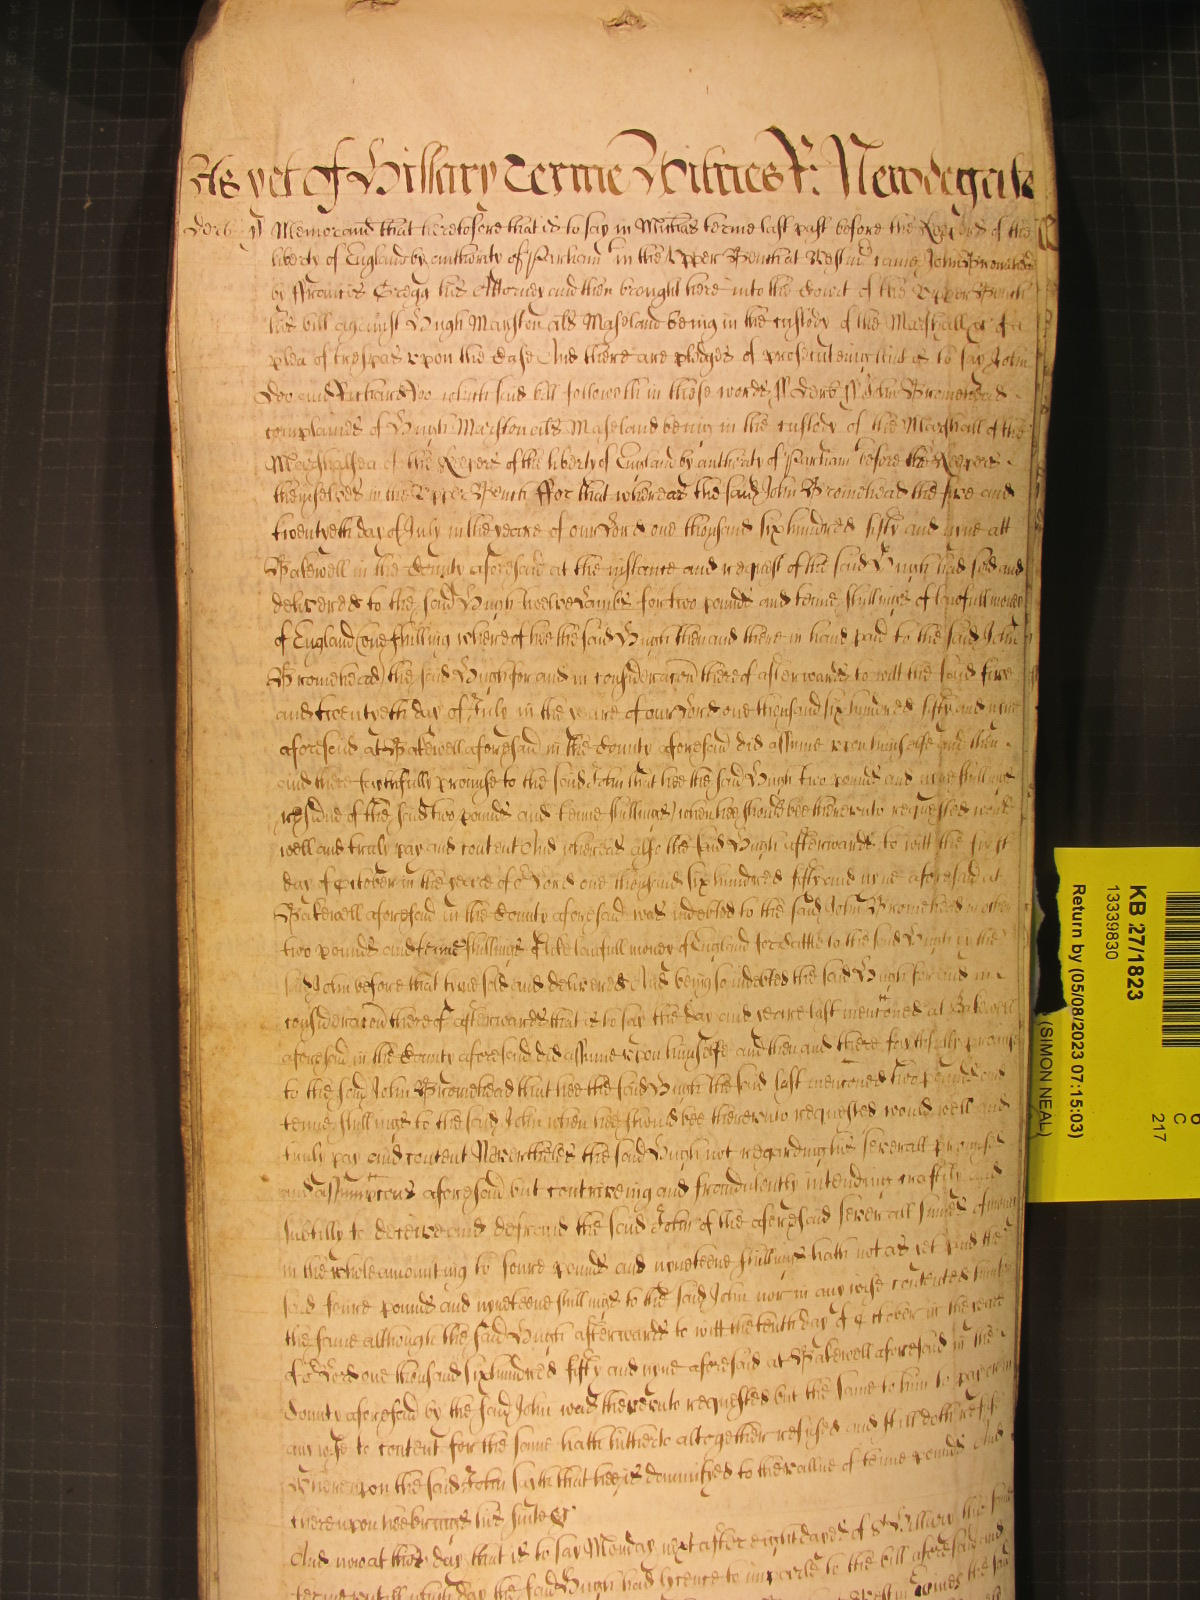 As yet of Hillary Terme Witnes R: Newdegate
Derb ss Memorand that heretofore that is to say in Michas terme last past before the Keepers of the
liberty of England by authority of Parliam in the Upper Bench at Westm came John Bromehead
by Francis Gregg his Attorney and then brought here into the Court of the Upper Bench
his bill against Hugh Marston als Maseland being in the custody of the Marshall &c of a
plea of trespas upon the Case And there are pledges of prosecuteing that is to say John
Doo and Richard Roo which said bill followeth in these words ss Derb ss John Bromehead
complaines of Hugh Marston als Maseland being in the custody of the Marshall of the
Marshalsea of the Keepers of the liberty of England by authority of Parliam before the Keepers
themselves in the Upper Bench For that whereas the said John Bromehead the five and
twentyeth day of July in the yeare of our Lord one thousand six hundred fifty and nyne att
Bakewell in the County aforesaid at the instance and request of the said Hugh had sold and
delivered to the said Hugh twelve Lambs for two pounds and tenne shillings of lawfull money
of England (one shilling whereof hee the said Hugh then and there in hand paid to the said John
Bromehead) the said Hugh for and in consideracon thereof afterwards to witt the said five
and twentyeth day of July in the yeare of our Lord one thousand six hundred fifty and nyne
aforesaid at Bakewell aforesaid in the County aforesaid did assume upon himselfe and then
and there faithfully promise to the said John that hee the said Hugh two pounds and nyne shillings
residue of the said two pounds and tenne shillings when hee should bee thereunto requested would
well and truly pay and content And whereas also the said Hugh afterwards to witt the first
day of October in the yeare of or Lord one thousand six hundred fifty and nyne aforesaid at
Bakewell aforesaid in the County aforesaid was indebted to the said John Bromehead in other
two pounds and tenne shillings of like lawfull money of England for Cattle to the said Hugh by the
said John before that tyme sold and delivered And being so indebted the said Hugh for and in
consideracon thereof afterwards that is to say the day and yeare last menconed at Bakewell
aforesaid in the County aforesaid did assume upon himselfe and then and there faithfully promise
to the said John Bromehead that hee the said Hugh the said last menconed two pounds and
tenne shillings to the said John when hee should bee thereunto requested would well and
truly pay and content Neverthelesse the said Hugh not regarding his severall promises
and assumpcons aforesaid but contriveing and fraudulently intending craftily and
subtilly to deceive and defraud the said John of the aforesaid severall summes of money
in the whole amounting to foure pounds and nyneteene shillings hath not as yet paid the
said foure pounds and nyneteene shillings to the said John nor in any wise contented him for
the same although the said Hugh afterwards to witt the tenth day of October in the yeare
of or Lord one thousand six hundred fifty and nyne aforesaid at Bakewell aforesaid in the
County aforesaid by the said John was thereunto requested but the same to him to pay or in
any wise to content for the same hath hitherto altogether refused and still doth refuse
Whereupon the said John sayth that hee is damnifyed to the vallue of tenne pounds And
thereupon hee brings his suite &c
And now at this day that is to say Monday next after eight dayes of St Hillary this same
terme untill which day the said Hugh had lycence to imparle to the bill aforesaid and
KB 27/1823
13339830
Return by (05/08/2023 07:15:03)
(SIMON NEAL)
C
217